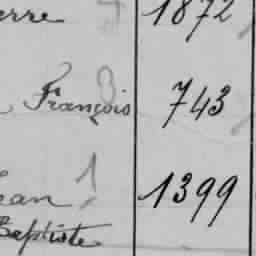 erre 1872
François 743
ean 1399
Baptiste